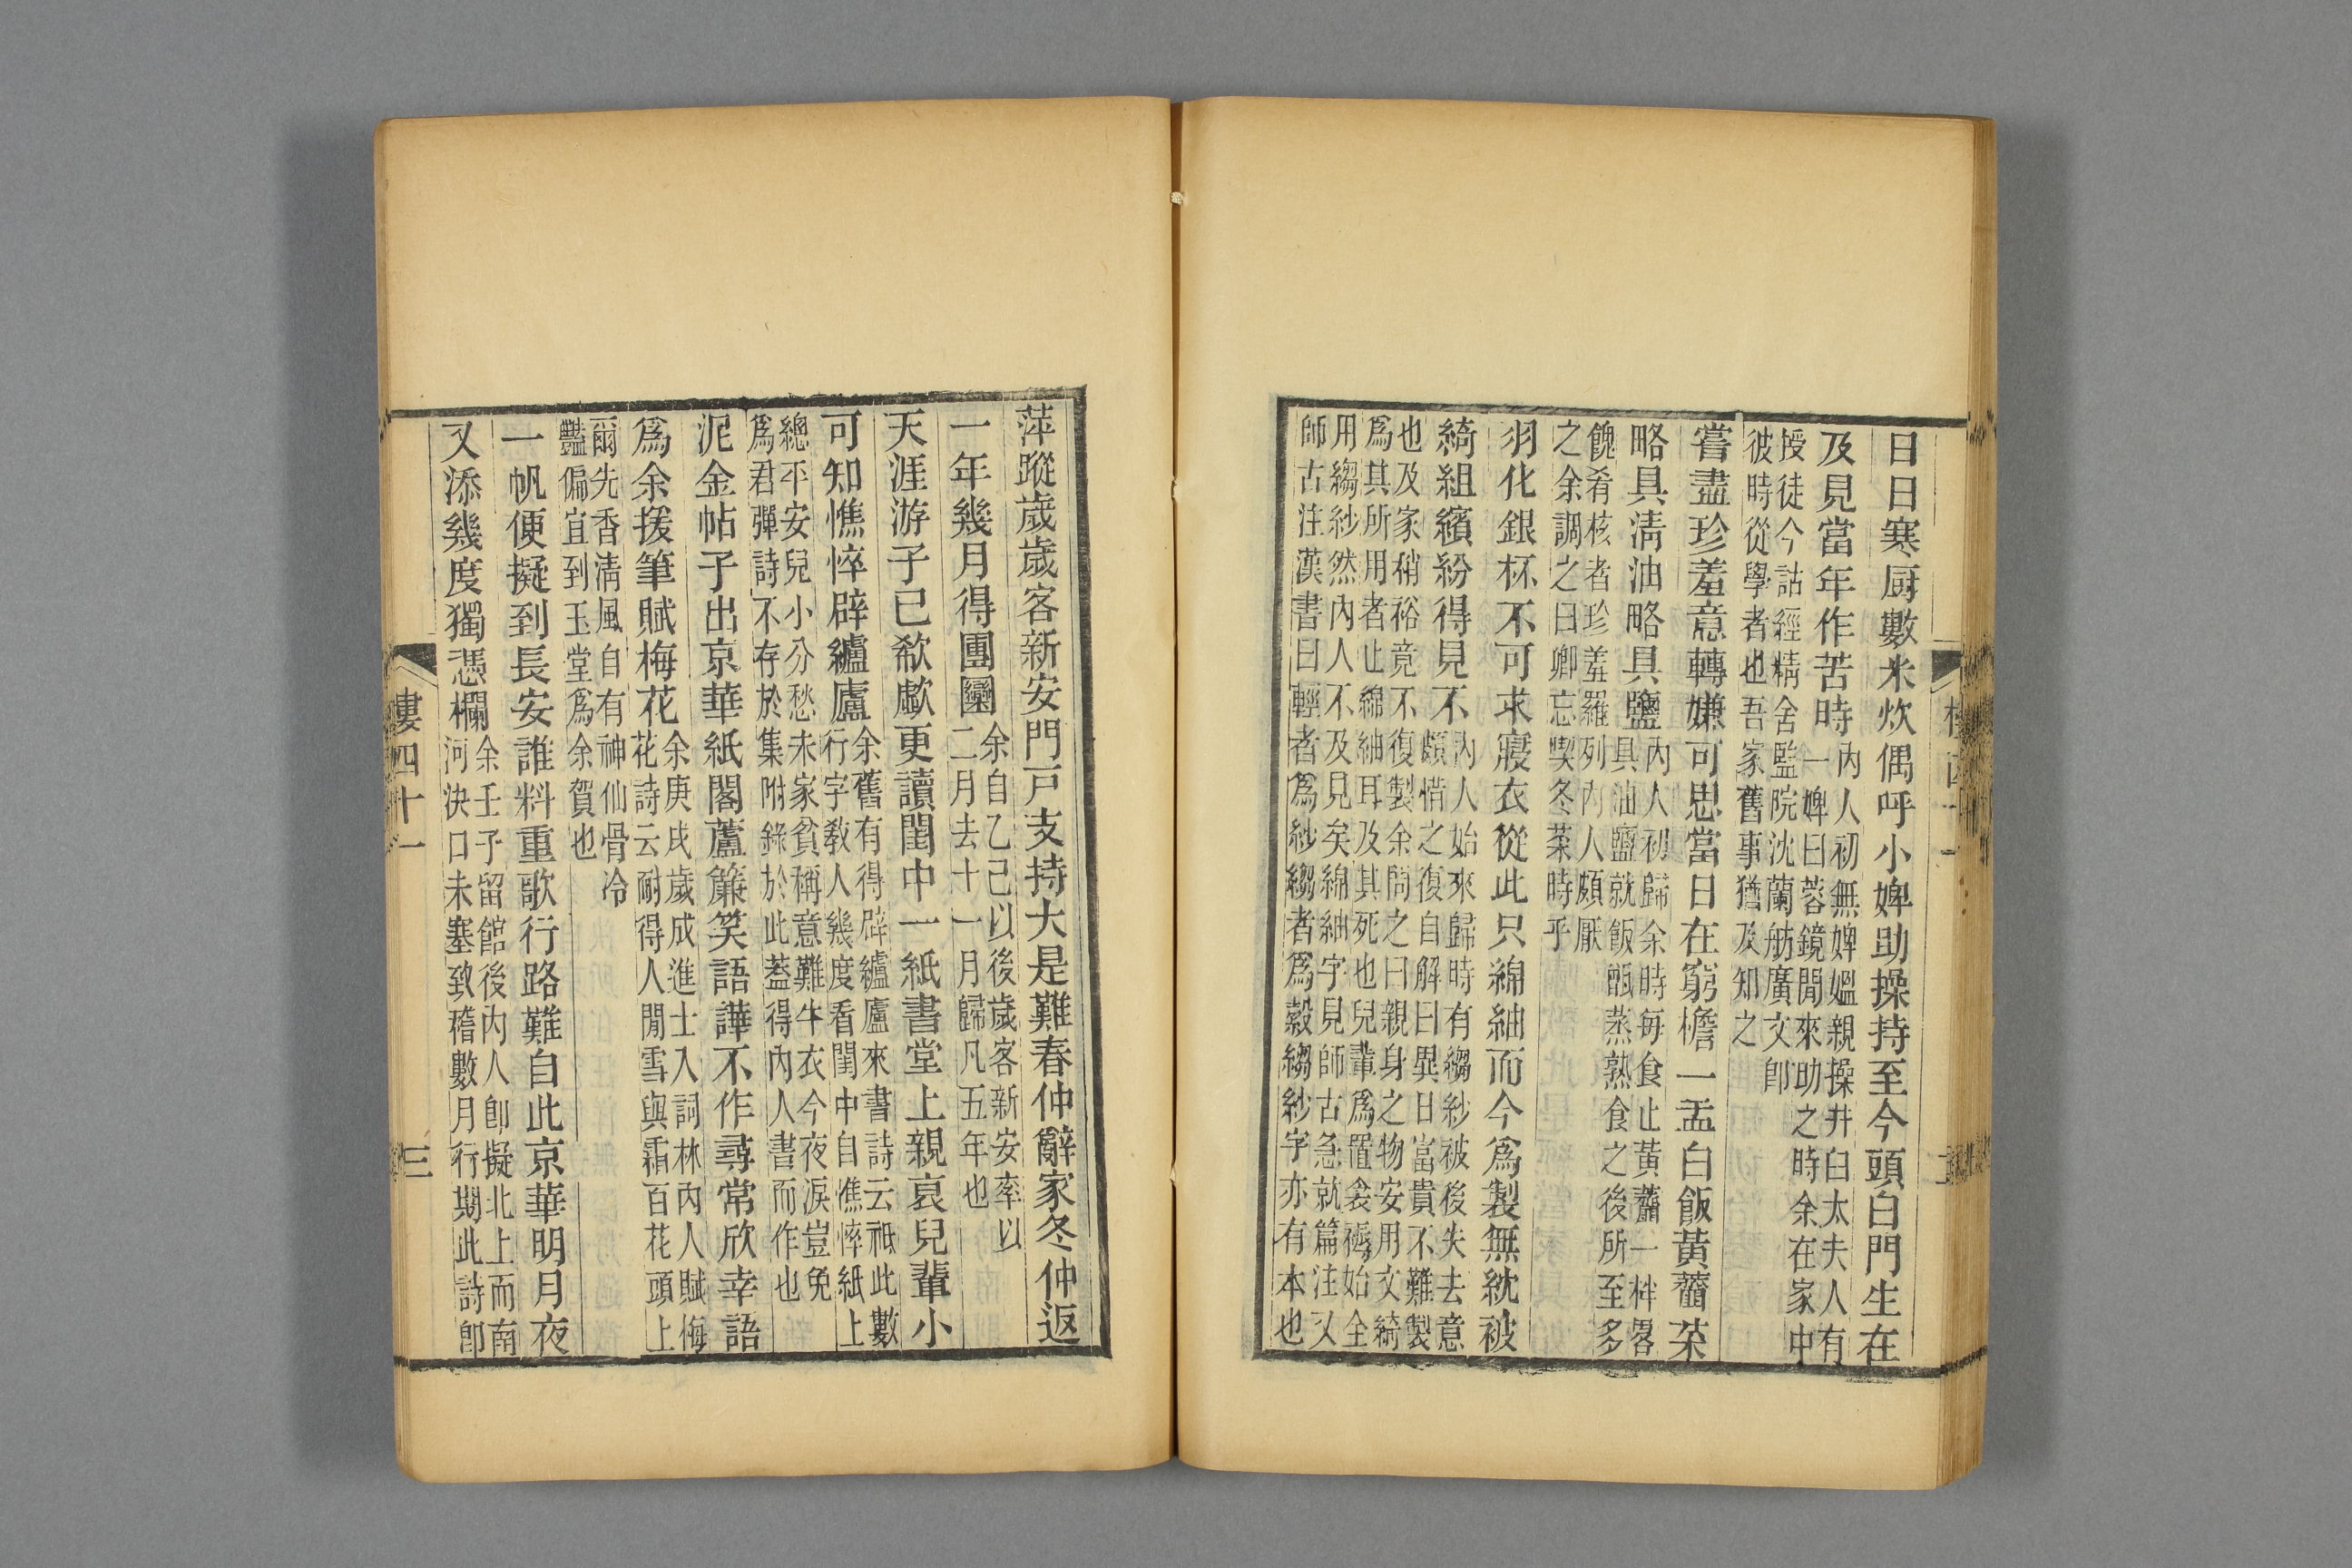 日日寒厨數米炊偶呼小婢助操持至今頭白門生在
及見當年作苦時內人初無婢媼親操井臼太夫人有
一婢曰蓉鏡閒來助之時余在家中
授徒今詁經精舍監院沈蘭舫廣文卽
彼時從學者也吾家舊事猶及知之
嘗盡珍羞意轉嫌可思當日在窮檐一盂白飯黃虀茶
略具清油略具鹽內人初歸余時每食止黃虀一柈畧
具油鹽就飯甑蒸熟食之後所至多
餽肴核者珍羞羅列內人頗厭
之余調之曰卿忘喫冬菜時乎
羽化銀杯不可求寢衣從此只綿紬而今爲製無紞被
綺組繽紛得見不內人始來歸時有縐紗被後失去意
頗惜之復自解曰異日富貴不難製
也及家稍裕竟不復製余問之曰親身之物安用文綺
爲其所用者止綿紬耳及其死也兒輩爲置衾襚始全
用縐紗然內人不及見矣綿紬字見師古急就篇注又
師古注漢書曰輕者爲紗縐者爲縠縐紗字亦有本也
樓四十一
萍蹤歲歲客新安門戸支持大是難春仲辭家冬仲返
一年幾月得團圞余自乙己以後歲客新安率以
二月去十一月歸凡五年也
天涯游子已欷歔更讀閨中一紙書堂上親哀兒輩小
可知憔悴辟纑廬余舊有得辟纑廬來書詩云祗此數
行字敎人幾度看閨中自憔悴紙上
總平安兒小分愁未家貧稱意難牛衣今夜淚豈免
爲君彈詩不存於集附錄於此蓋得內人書而作也
泥金帖子出京華紙閣蘆簾笑語譁不作尋常欣幸語
爲余援筆賦梅花余庚戌歲成進士入詞林內人賦梅
花詩云耐得人閒雪與霜百花頭上
爾先香清風自有神仙骨冷
豔偏宜到玉堂爲余賀也
一帆便擬到長安誰料重歌行路難自此京華明月夜
又添幾度獨憑欄余壬子留館後內人卽擬北上而南
河決口未塞致稽數月行期此詩卽
樓四十一
三